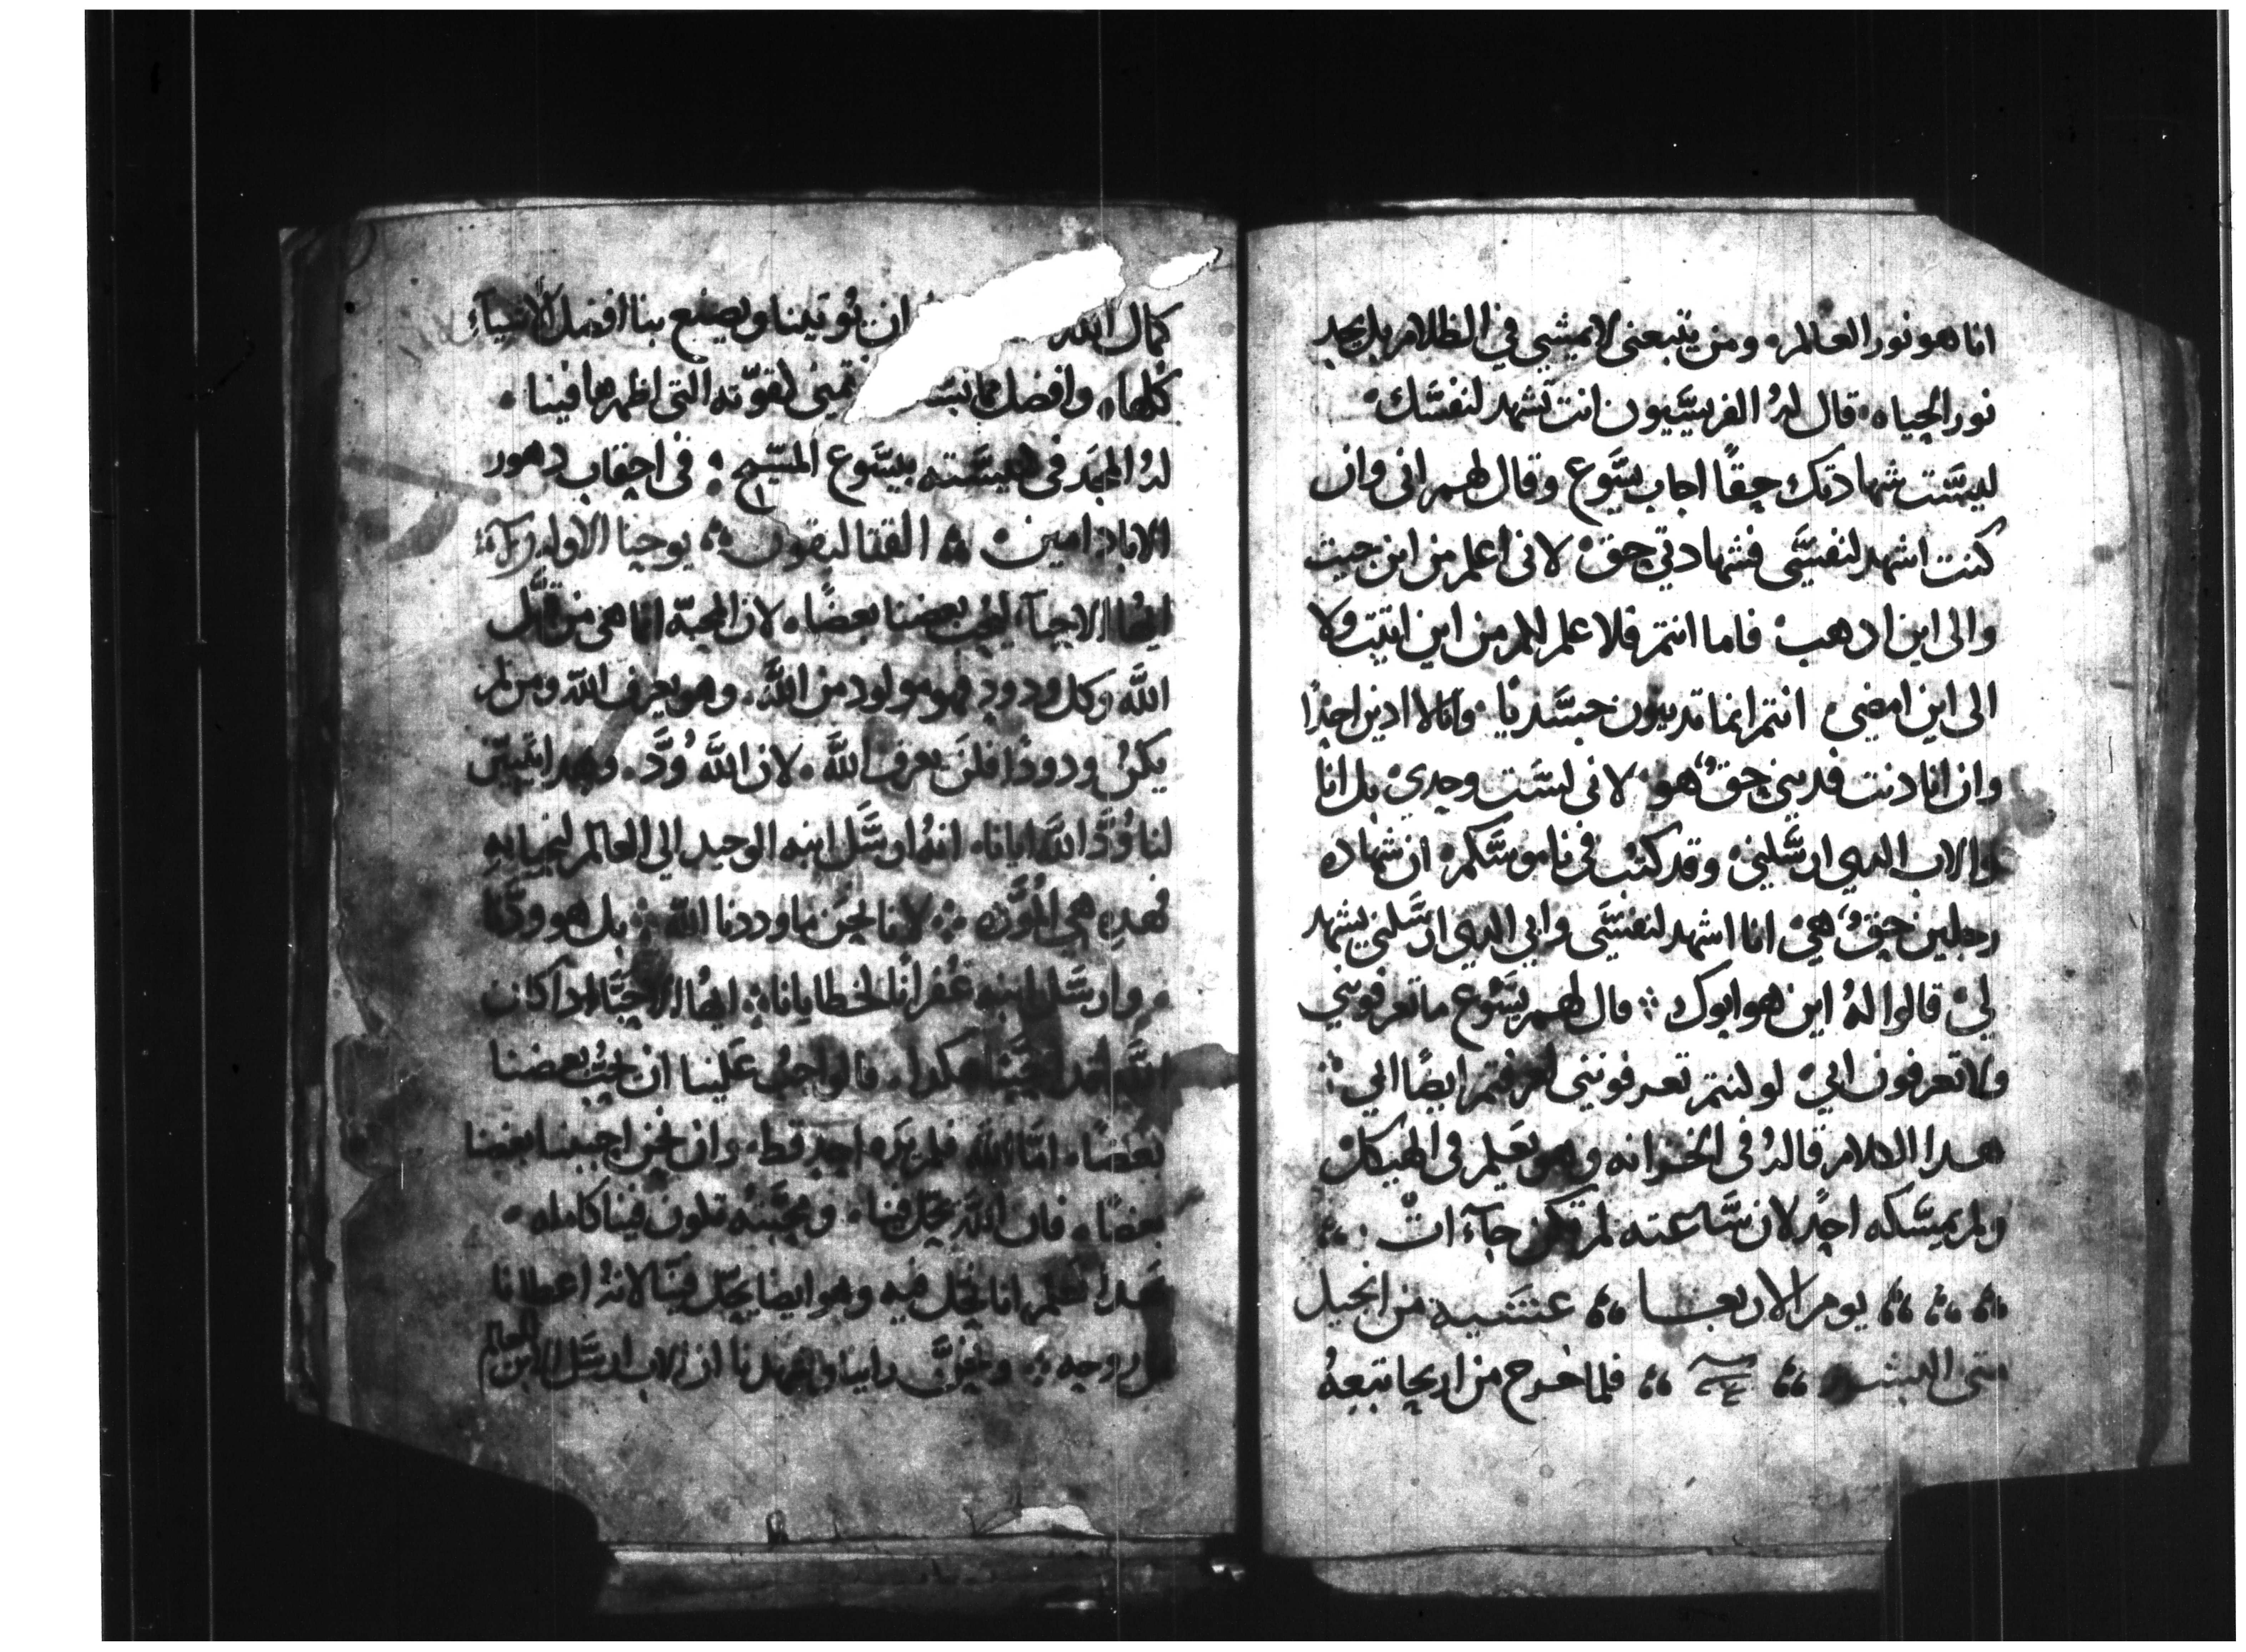 انا هو نور العالم ومن يتبعنى لا يمشي في الظلام بل يجد
نور الحياه قال لهُ الفريسيون انت تشهد لنفسك
ليست شهادتك حقًا اجاب يسوع وقال لهم انى وان
كنت اشهد لنفسى فشهادتي حق لانى اعلم من اين حيث
والى اين ادهب فاما انتم فلا علم لكم من اين اتيت ولا
الى اين امضي انتم انما تدينون جسدنيا وانا لا ادين احدًا
وان انا دنت فديني حق هو لانى لست وحدي بل انا
والاب الدي ارسلني وقد كتب في ناموسكم ان شهاده
رجلين حق هي انا اشهد لنفسى وابي الدي ارسلني يشهد
لي قالوا لهُ اين هو ابوك قال لهم يسوع ما تعرفوني
ولا تعرفون ابي لو كنتم تعرفوننى لعرفتم ايضًا ابي
هدا الكلام قالهُ فى الخزانه وهو يعلم فى الهيكل
ولم يمسكه احدٌ لان ساعته لم تكن جآءت
يوم الاربعا عشيه من انجيل
متى البشير فلما خرج من اريحا تبعهُ
كمال الله ان توتينا ويصنع بنا افضل الاشيآء
كلها وافضل مما لقوّته التى اظهرها فينا
لهُ المجد فى كنيسته بيسوع المسيح فى احقاب دهور
الاباد امين القتاليقون يوحنا الاوله
ايها الاحبآء ليحب بعضنا بعضًا لان المحبّة انما هى من قبل
الله وكل ودود فهو مولود من الله وهو يعرف الله ومن لم
يكنُ ودودًا فلن يعرف الله لان الله وُدَّ وبهدا تبين
لنا وُدَّ الله ايانا انهُ ارسَل ابنه الوحيد الي العالم لنحيا بهِ
فهدهِ هي المودّه لانا نحن ما وددنا الله بل هو ودّنا
وارسَل ابنه غفرانًا لخطايانا ايها الاحبّاء ادا كان
الله احبّنا هكدا فالواجب علينا ان نحب بعضنا
بعضًا امّا الله فلم يره احد قط وان نحن احببنا بعضنا
بعضًا فان الله يحل فينا ومحبّته تكون فينا كامله
بهدا نعلم انا نحل فيه وهو ايضًا يحل فينا لانهُ اعطانا
من روحه ونحن راينا وشهدنا ان الاب ارسَل الابن للعالم